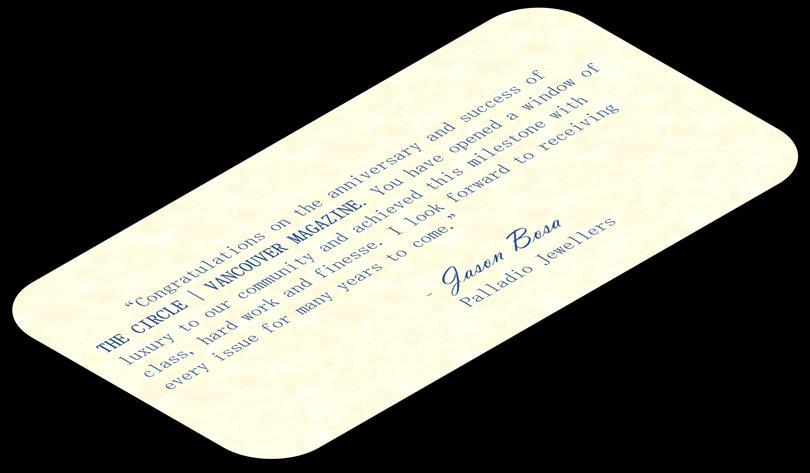 “Congratulations on the anniversary and success of
THE CIRCLE | VANCOUVER MAGAZINE. You have opened a window of
luxury to our community and achieved this milestone with
class, hard work and finesse. I look forward to receiving
every issue for many years to come.”
- Jason Bosa
Palladio Jewellers